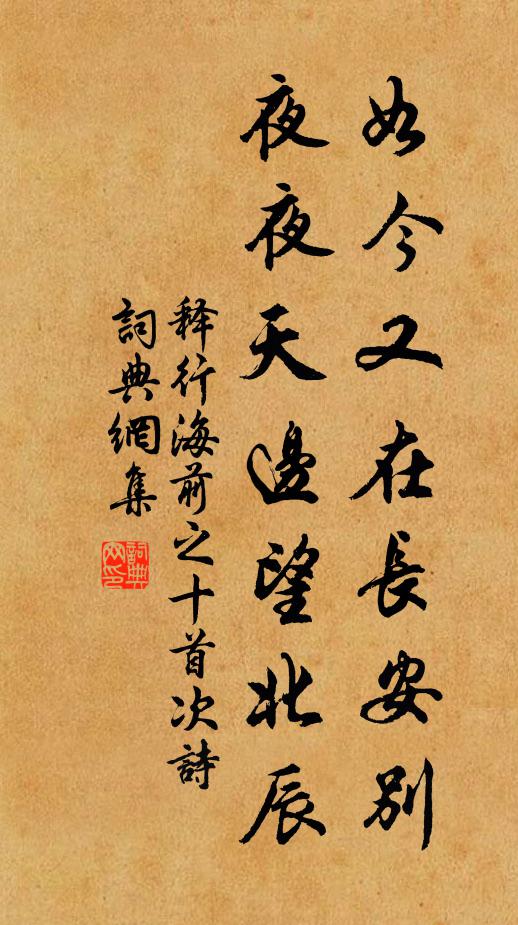 如今又在長安別
夜夜天邊望北辰
释行海前之十首次詩
詞典網集
詞典
网印